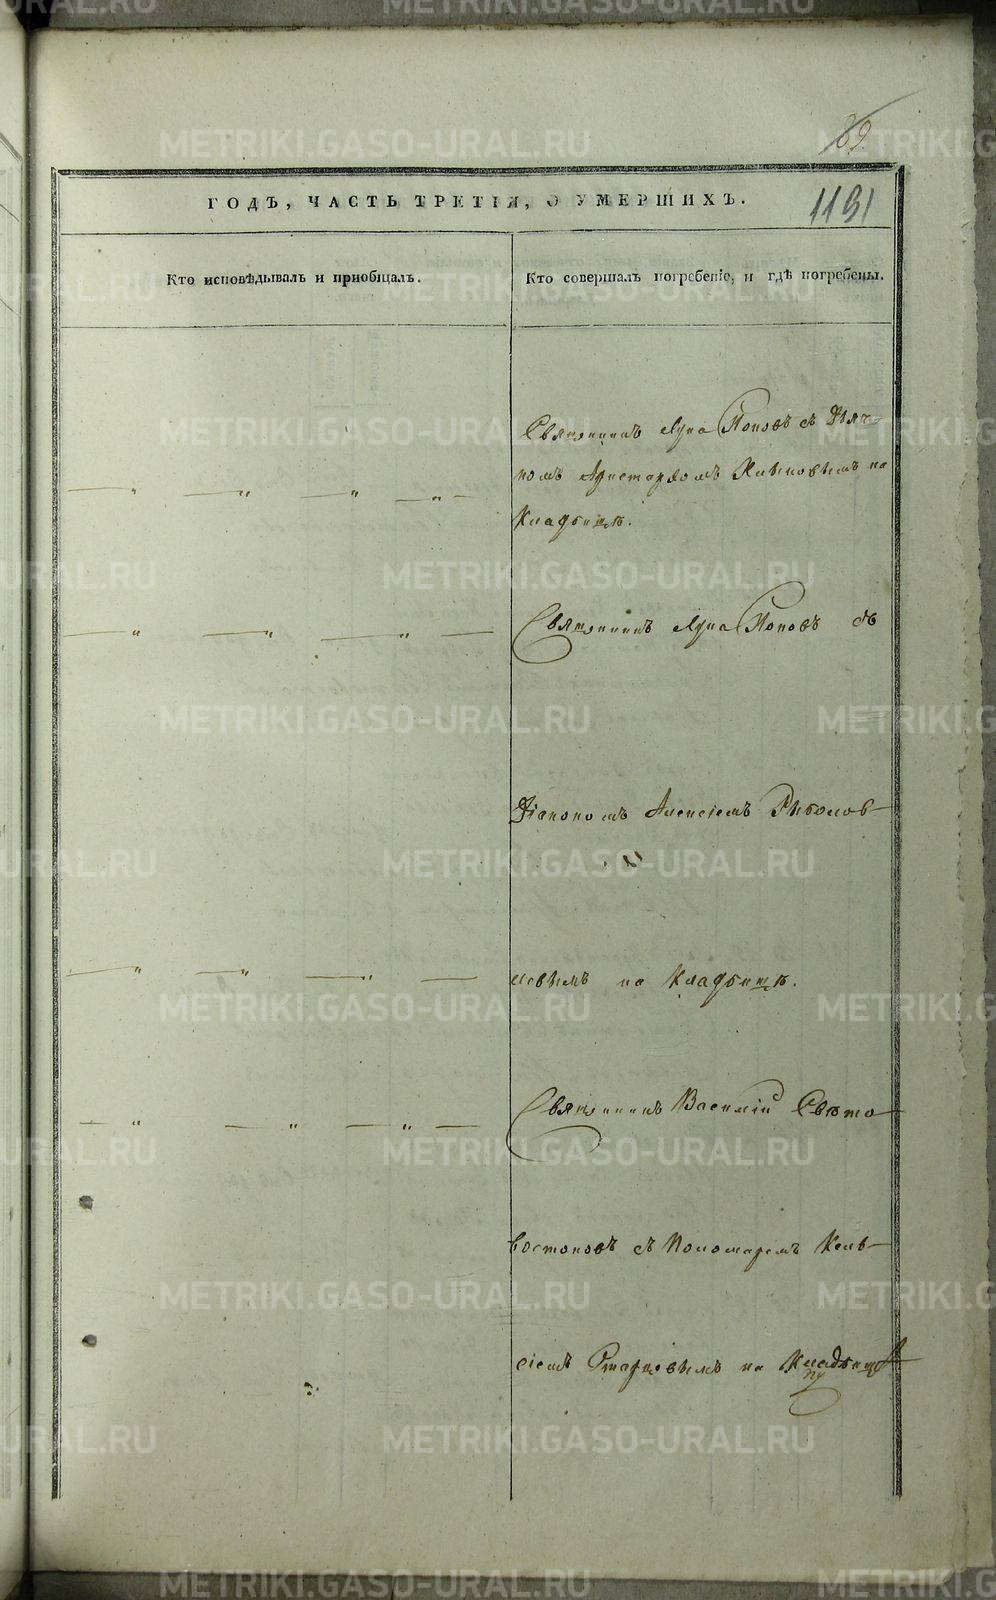 89
1191
ГОДЪ, ЧАСТЬ ТРЕТІЯ, О УМЕРШИХЪ.
Кто исповѣдывалъ и пріобщалъ.
Кто совершалъ погребеніе, и гдѣ погребены.
Священникъ Лука Поповъ съ Дьяч-
комъ Аристархомъ на
Кладбищѣ.
Священникъ Лука Поповъ съ
Діакономъ Алексіемъ Риболов-
левымъ на Кладбищѣ.
Священникъ Василій Свѣто
востоковъ съ Пономаремъ Кель-
сіемъ Старцовымъ на Кладбищѣ
METRIKI.GASO-URAL.RU